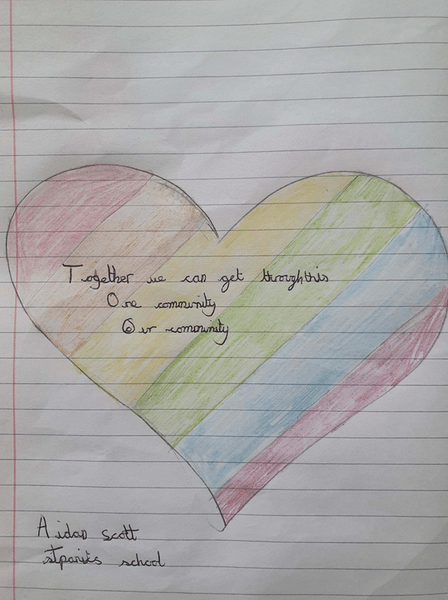 Together we can get throughthis
One community
Our community
Aidan scott
school